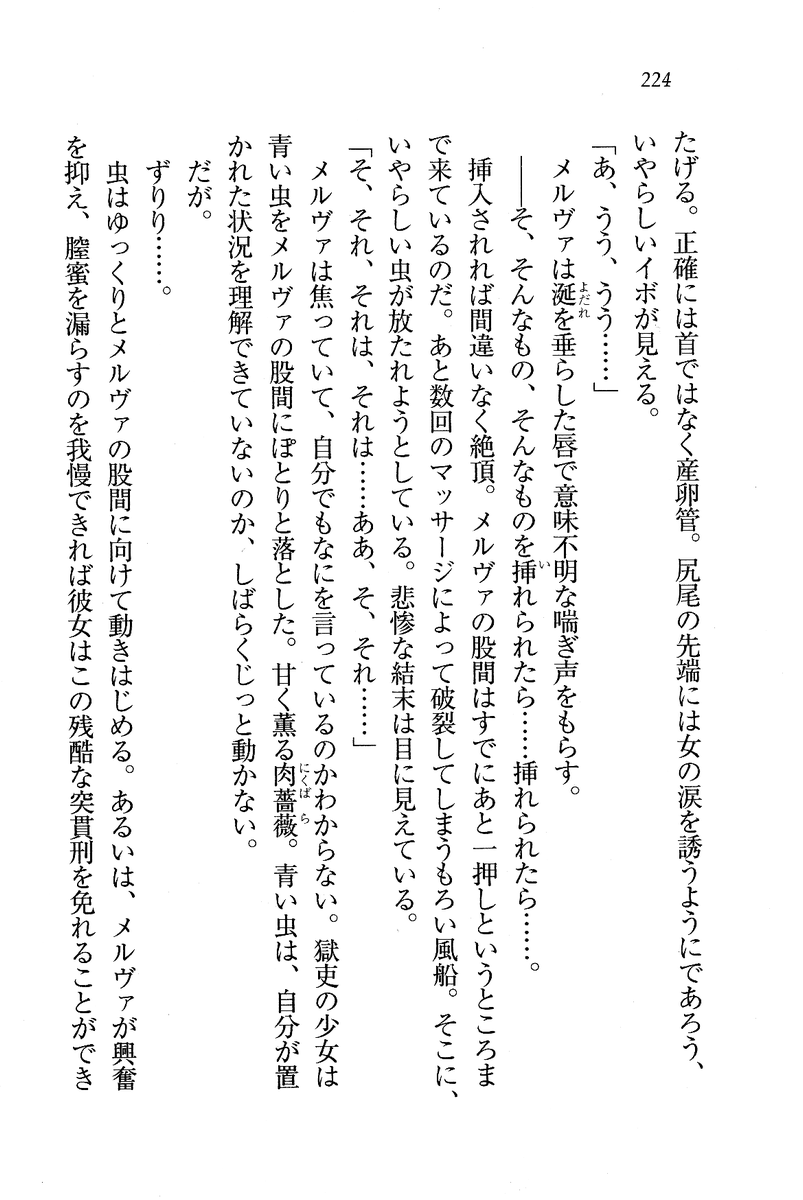 224
たげる。正確には首ではなく産卵管。尻尾の先端には女の涙を誘うようにであろう、
いやらしいイボが見える。
「あ、うう、うう……」
メルヴァは涎を垂らした唇で意味不明な喘ぎ声をもらす。
――そ、そんなもの、そんなものを挿れられたら……挿れられたら……。
挿入されれば間違いなく絶頂。メルヴァの股間はすでにあと一押しというところま
で来ているのだ。あと数回のマッサージによって破裂してしまうもろい風船。そこに、
いやらしい虫が放たれようとしている。悲惨な結末は目に見えている。
「そ、それ、それは、それは……ああ、そ、それ……」
メルヴァは焦っていて、自分でもなにを言っているのかわからない。獄吏の少女は
青い虫をメルヴァの股間にぽとりと落とした。甘く薫る肉薔薇。青い虫は、自分が置
かれた状況を理解できていないのか、しばらくじっと動かない。
だが。
ずりり……。
虫はゆっくりとメルヴァの股間に向けて動きはじめる。あるいは、メルヴァが興奮
を抑え、膣蜜を漏らすのを我慢できれば彼女はこの残酷な突貫刑を免れることができ